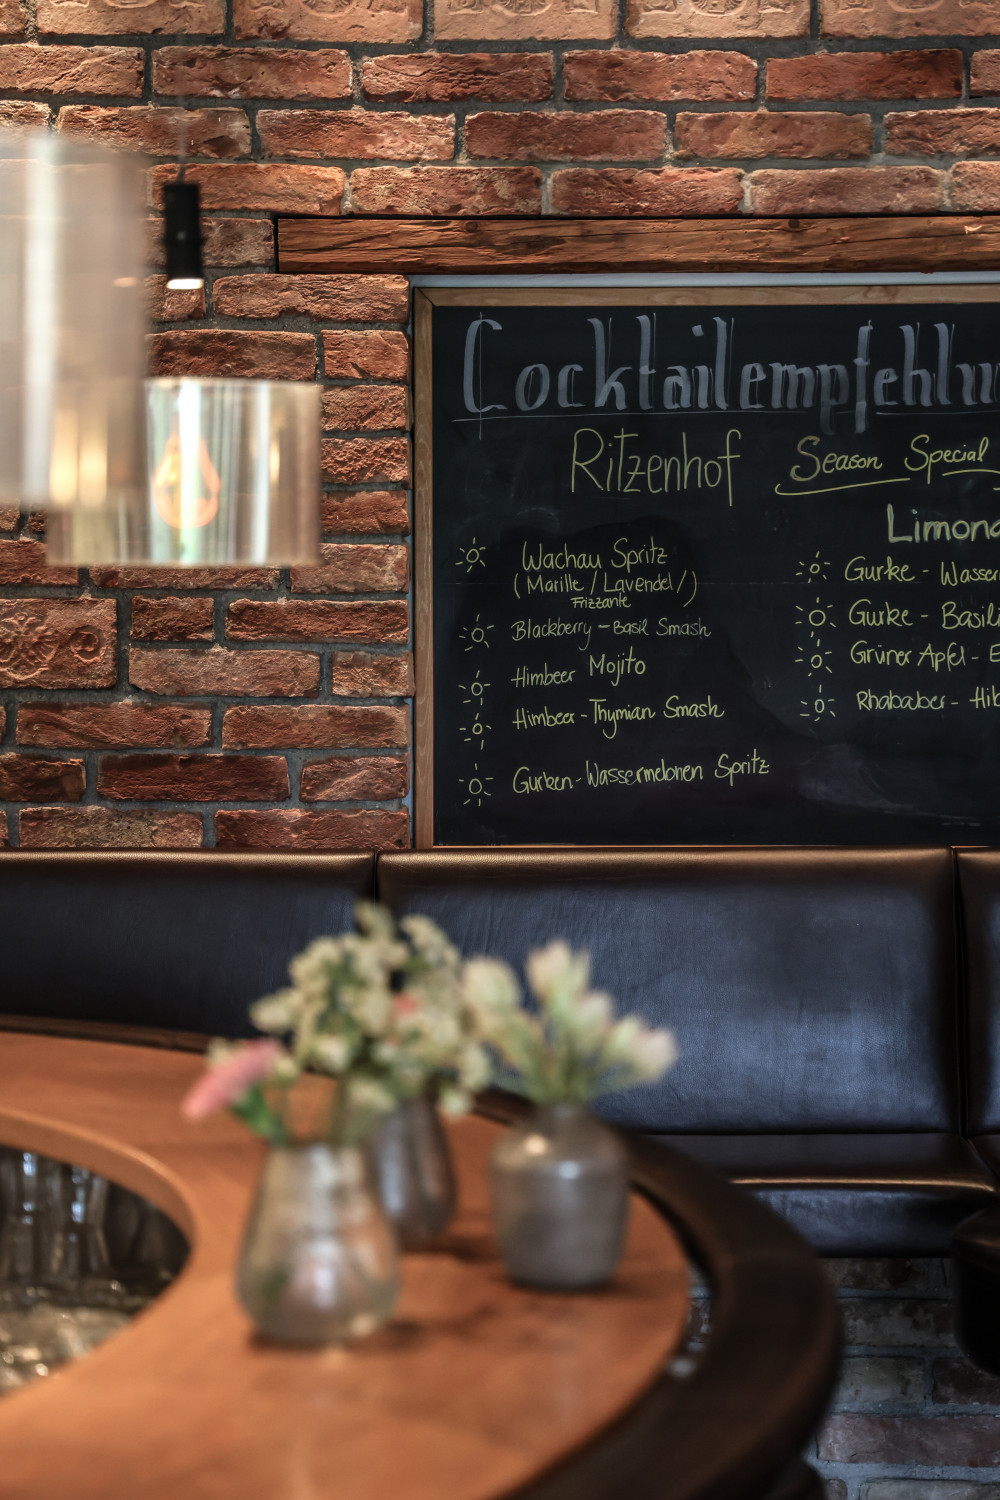 Cocktailempfehlu
Ritzenhof Season Special
Wachau Spritz
(Marille / Lavendel /)
Frizzante
Blackberry - Basil Smash
Himbeer Mojito
Himbeer - Thymian Smash
Gurken - Wassermelonen Spritz
Limona
Gurke - Wasser
Gurke - Basili
Grüner Apfel - E
Rhababer - Hib